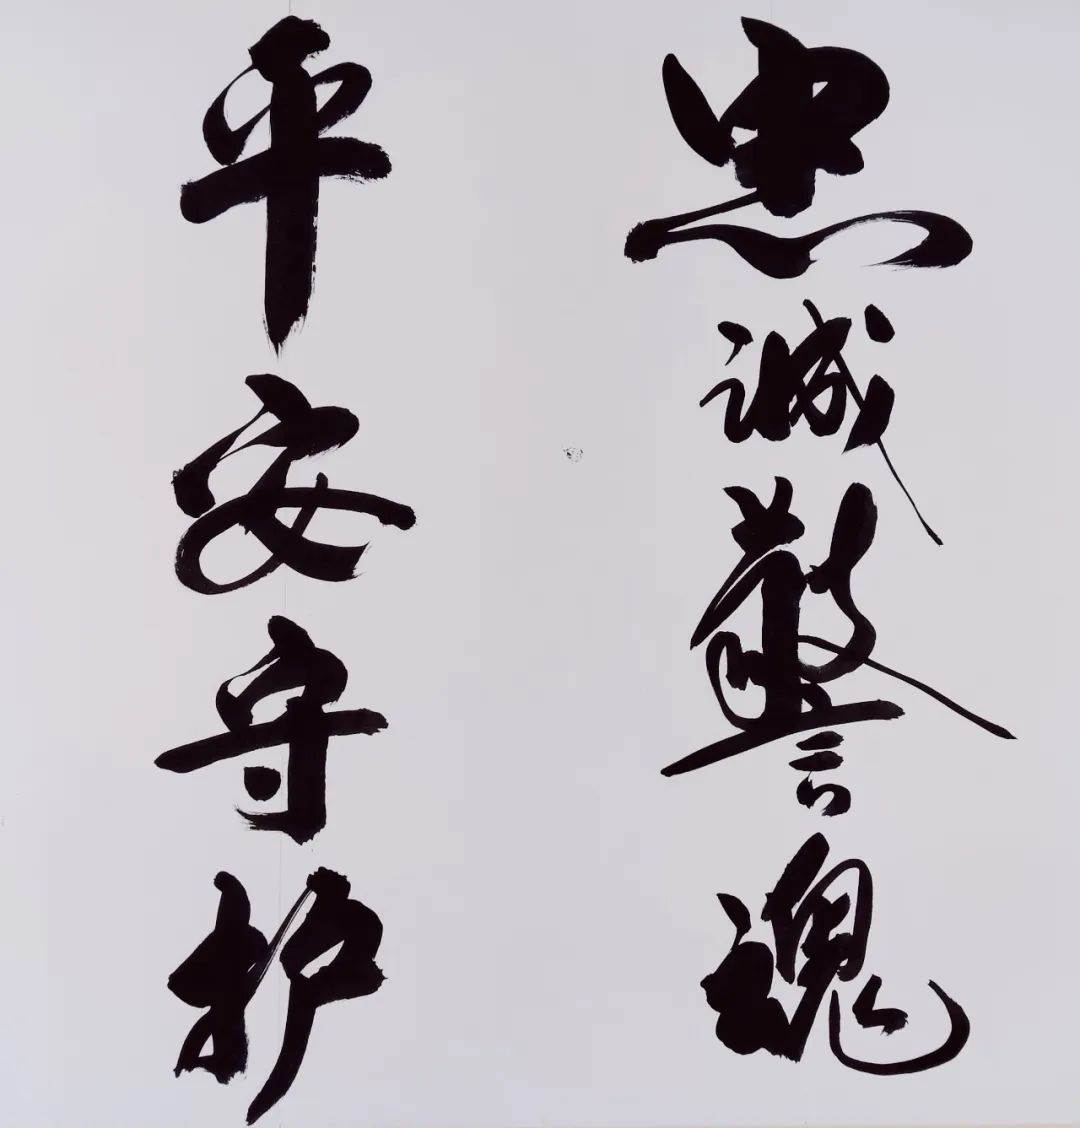 忠诚警魂
平安守护